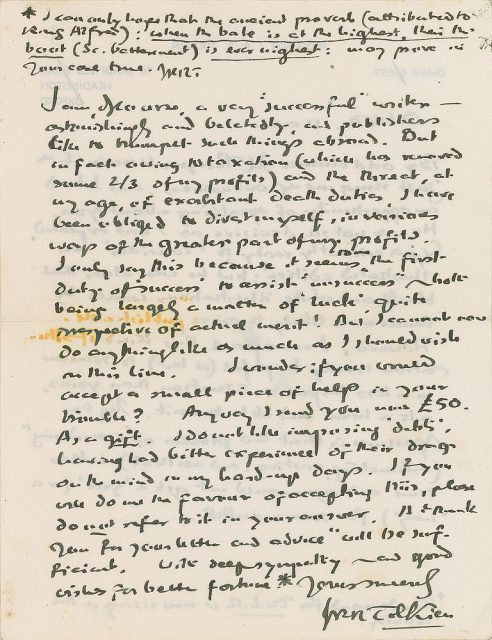 * I can only hope that the ancient proverb (attributed to
King Alfred): when the bale is at the highest, then the
boot (Sc. betterment) is ever nighest: may prove in
your case true. JRRT.
I am, of course, a very "successful" writer —
astonishingly and belatedly, and publishers
like to trumpet such things abroad. But
in fact owing to taxation (which has removed
some 2/3 of my profits) and the threat, at
my age, of exorbitant Death duties, I have
been obliged to divest myself, in various
ways of the greater part of my profits
I only say this because it seems the first
duty of 'success' to assist some 'unsuccess' – both
being largely a matter of 'luck' quite
irrespective of actual merit! But I cannot now
do anything like as much as I should wish
on this line. I wonder if you would
accept a small piece of help in your
trouble? Anyway I send you now £50.
As a gift. I do not like imposing 'debts',
having had bitter experience of their drag
on the mind in my hard-up days. If you
will do me the favour of accepting this, please
do not refer to it in your answer. A "thank
you for your letter and advice" will be suf-
ficient. With deep sympathy – and good
wishes for better fortune * Yours sincerely
JRR Tolkien